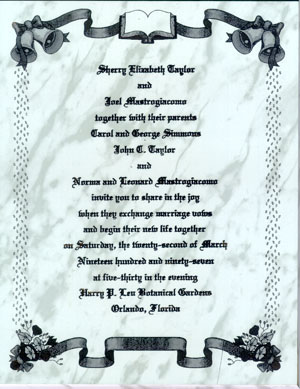 Sherry Elizabeth Taylor
and
Joel Mastrogiacomo
together with their parents
Carol and George Simmons
John C. Taylor
and
Norma and Leonard Mastrogiacomo
invite you to share in the joy
when they exchange marriage vows
and begin their new life together
on Saturday, the twenty-second of March
Nineteen hundred and ninety-seven
at five-thirty in the evening
Harry P. Leu Botanical Gardens
Orlando, Florida